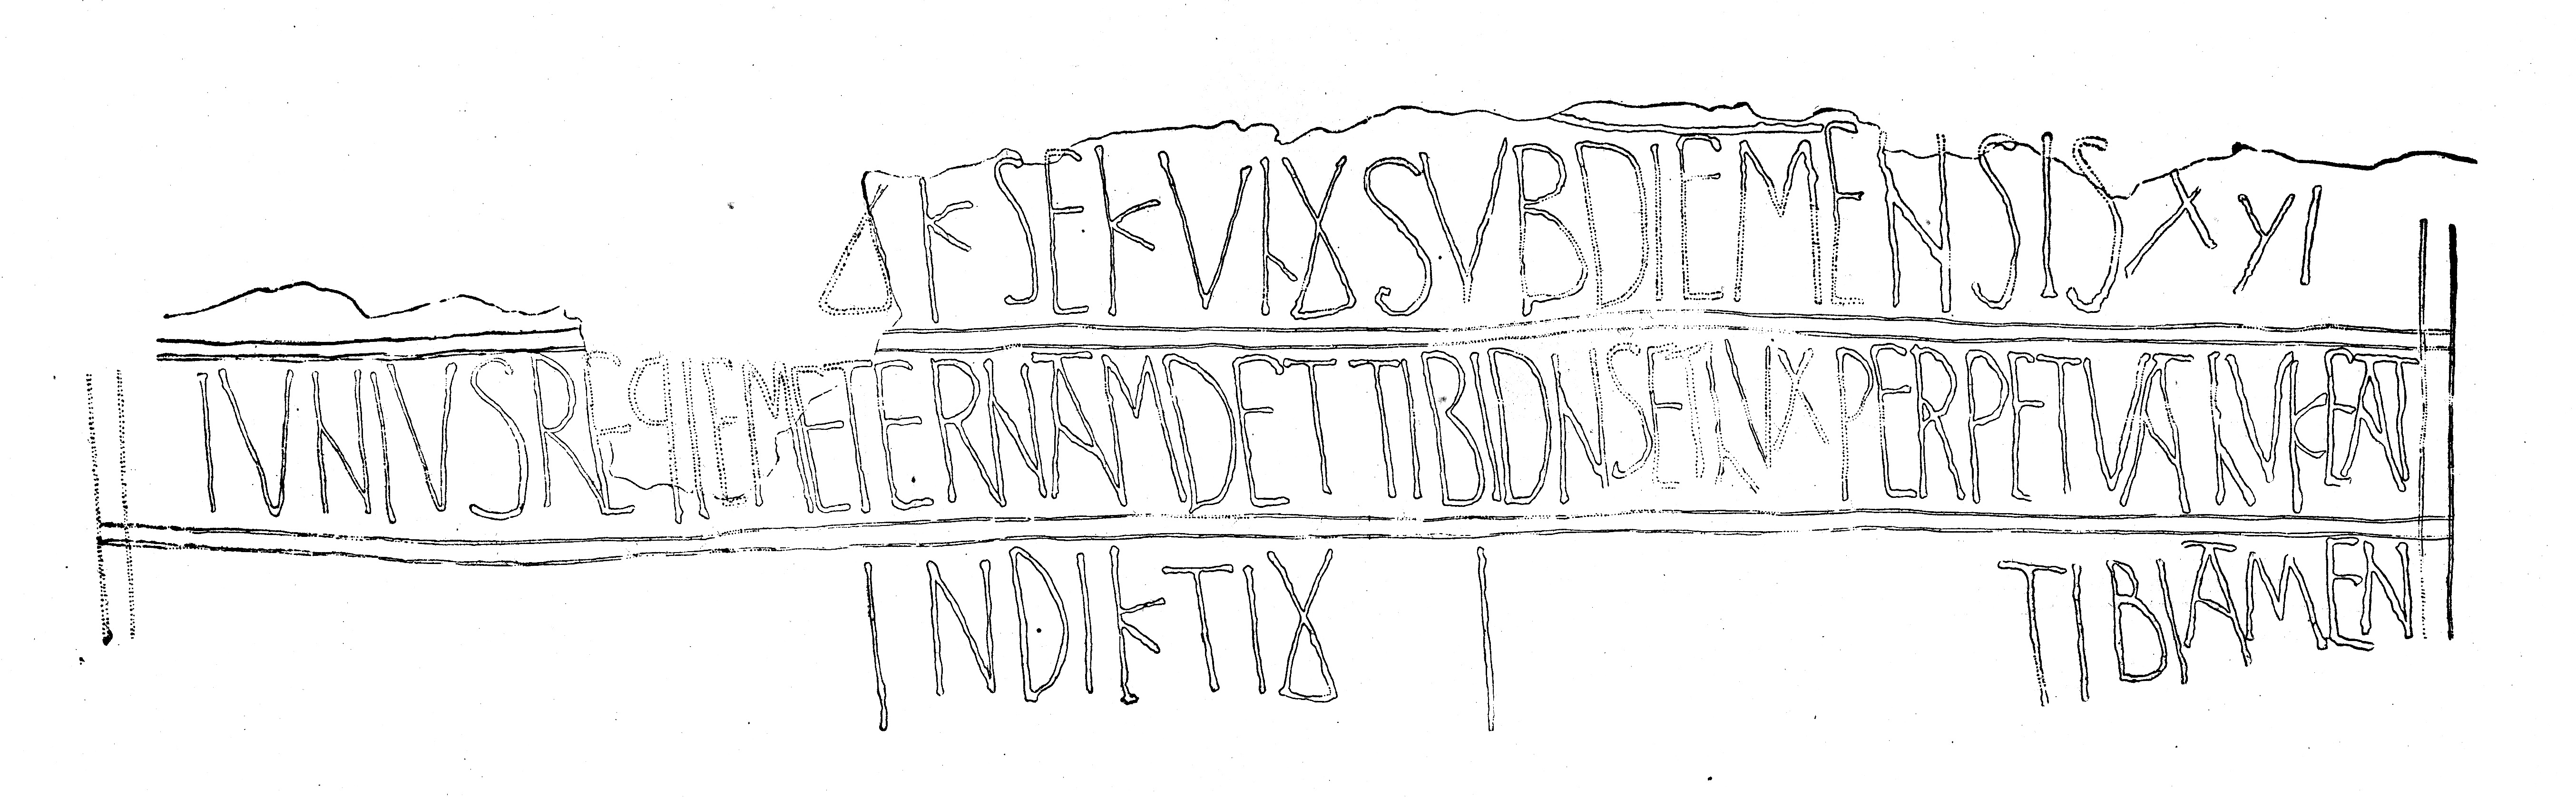 OC SECVLO SVB DIE MENSIS XVI
IVNIVS REQVIEM ETERNAM DET TIBI DNS ET LVX PERPETVA LVCEAT
INDICTIO TIBI AMEN